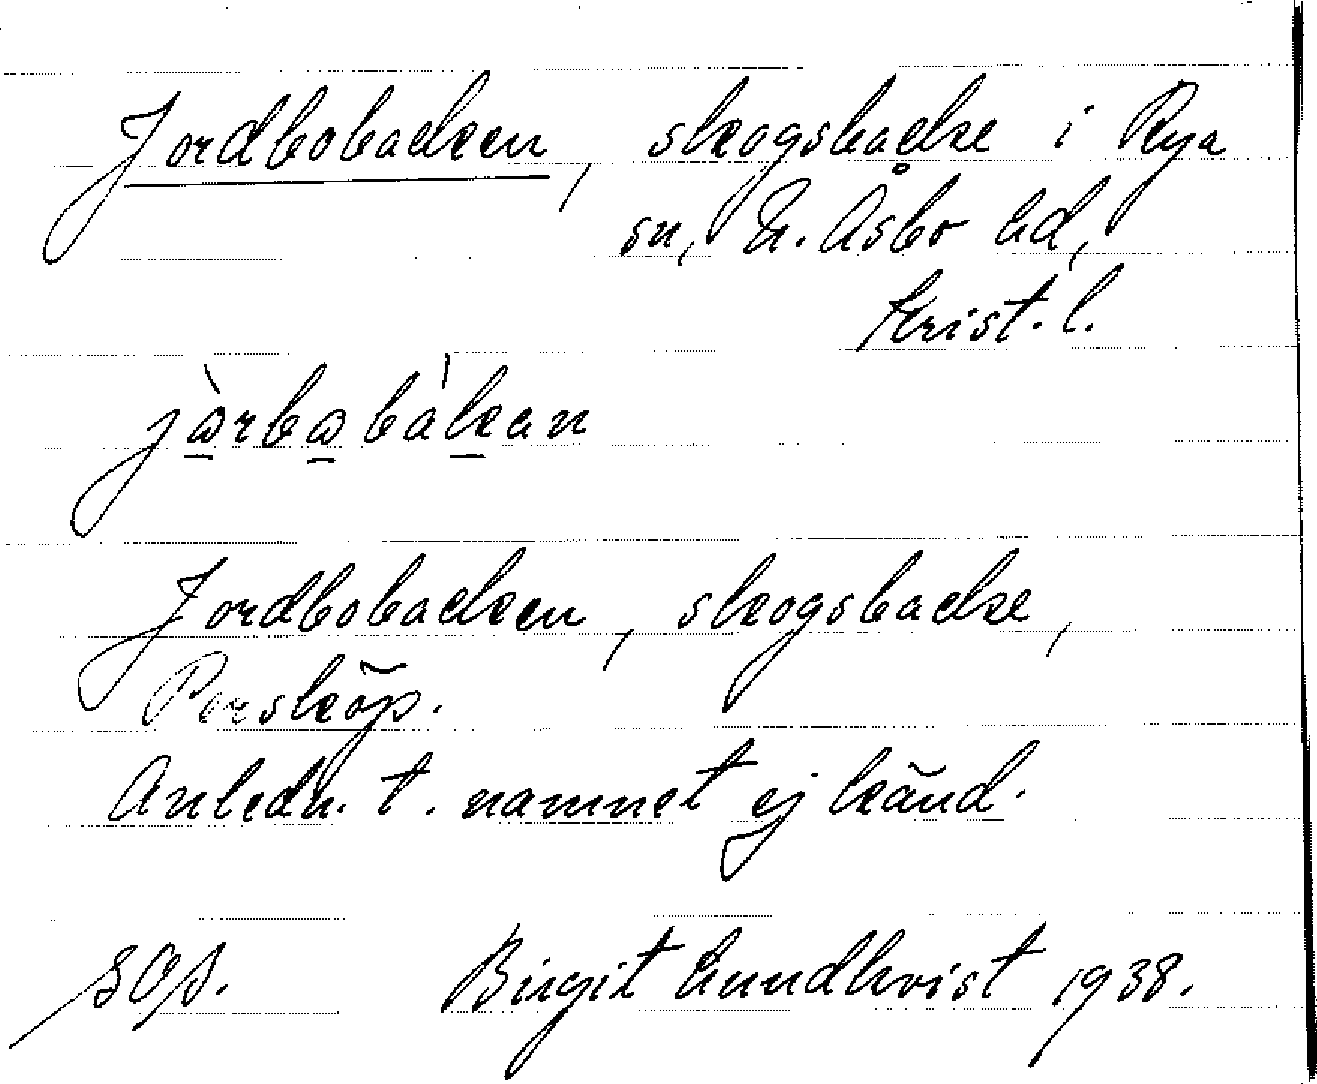 Jordbobacken, skogsbacke i Rya
sn, N. Åsbo hd,
Krist. l.
jàrbabàkan
Jordbobacken, skogsbacke,
Porsköp.
Anledn. t. namnet ej känd.
Birgit Lundkvist 1938.